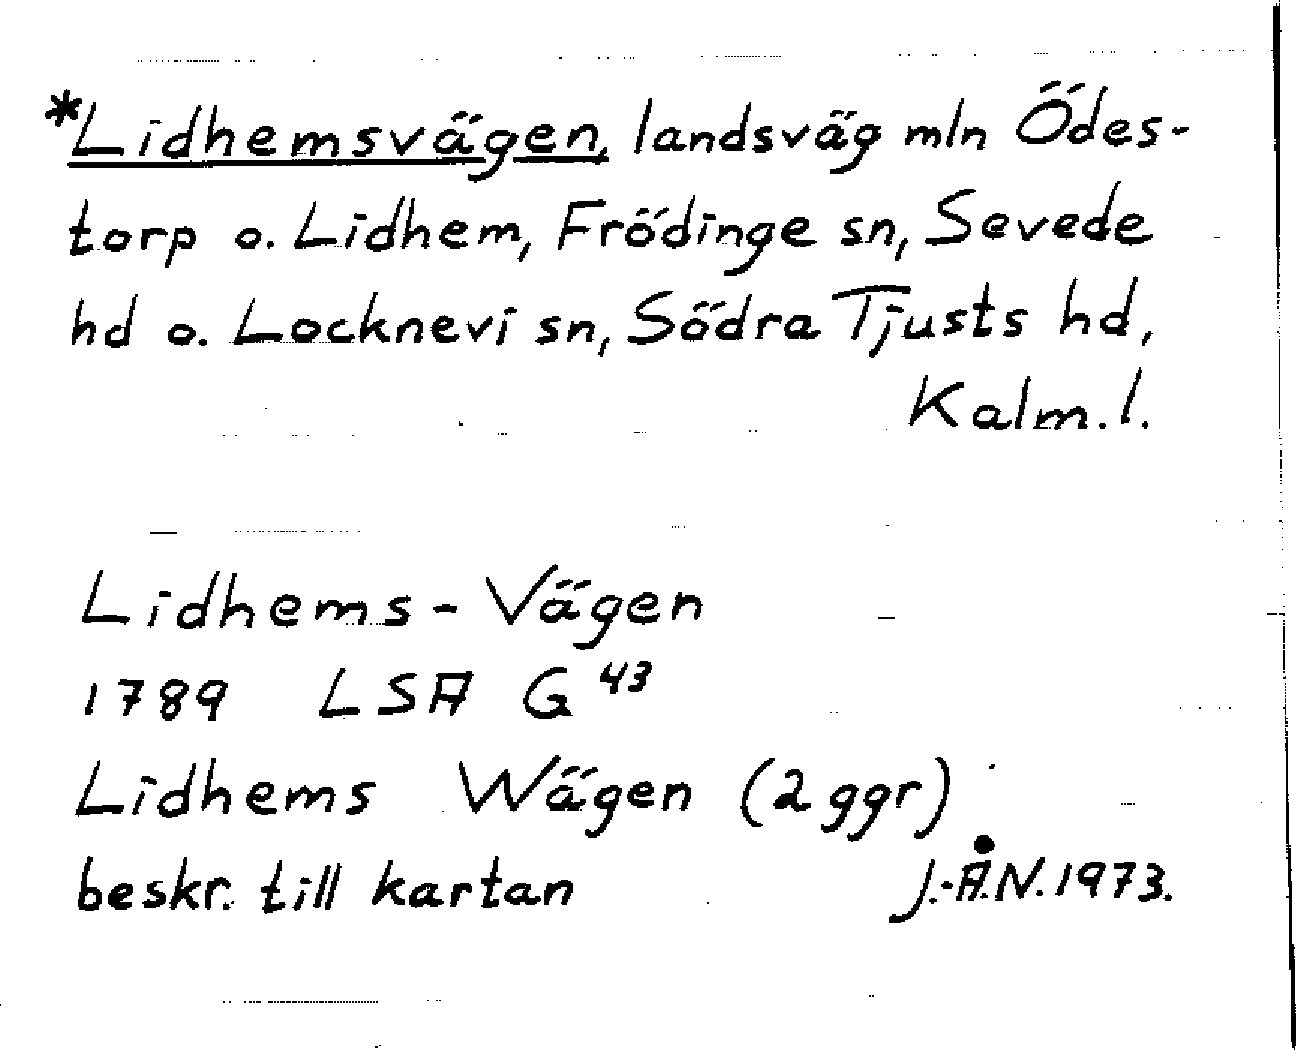 *Lidhemsvägen, landsväg mln Ödes-
torp o. Lidhem, Frödinge sn, Sevede
hd o. Locknevi sn, Södra Tjusts hd,
Kalm. l.
Lidhems - Vägen
1789 LSA G 43
Lidhems Wägen (2 ggr)
beskr. till kartan J.-Å.N. 1973.